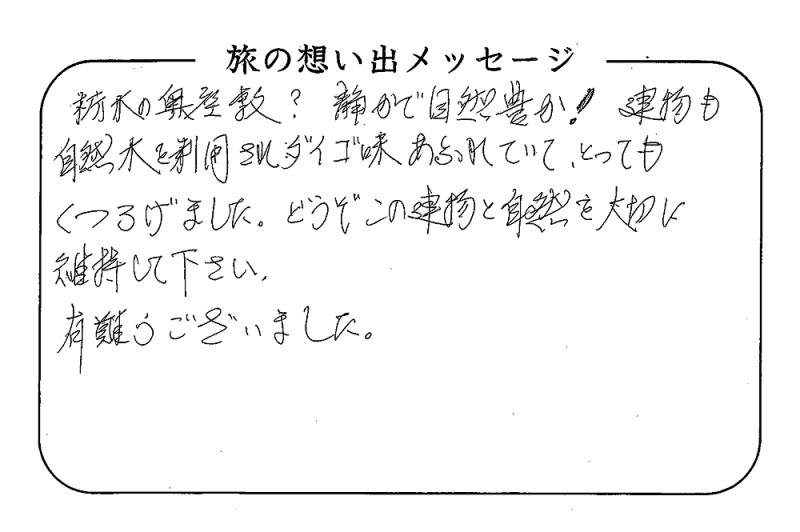 旅の想い出メッセージ
の奥座敷? 静かで自然豊か! 建物も
自然木を利用されダイゴ味あふれていて、とっても
くつろげました。どうぞこの建物と自然を大切に
維持して下さい。
有難うございました。